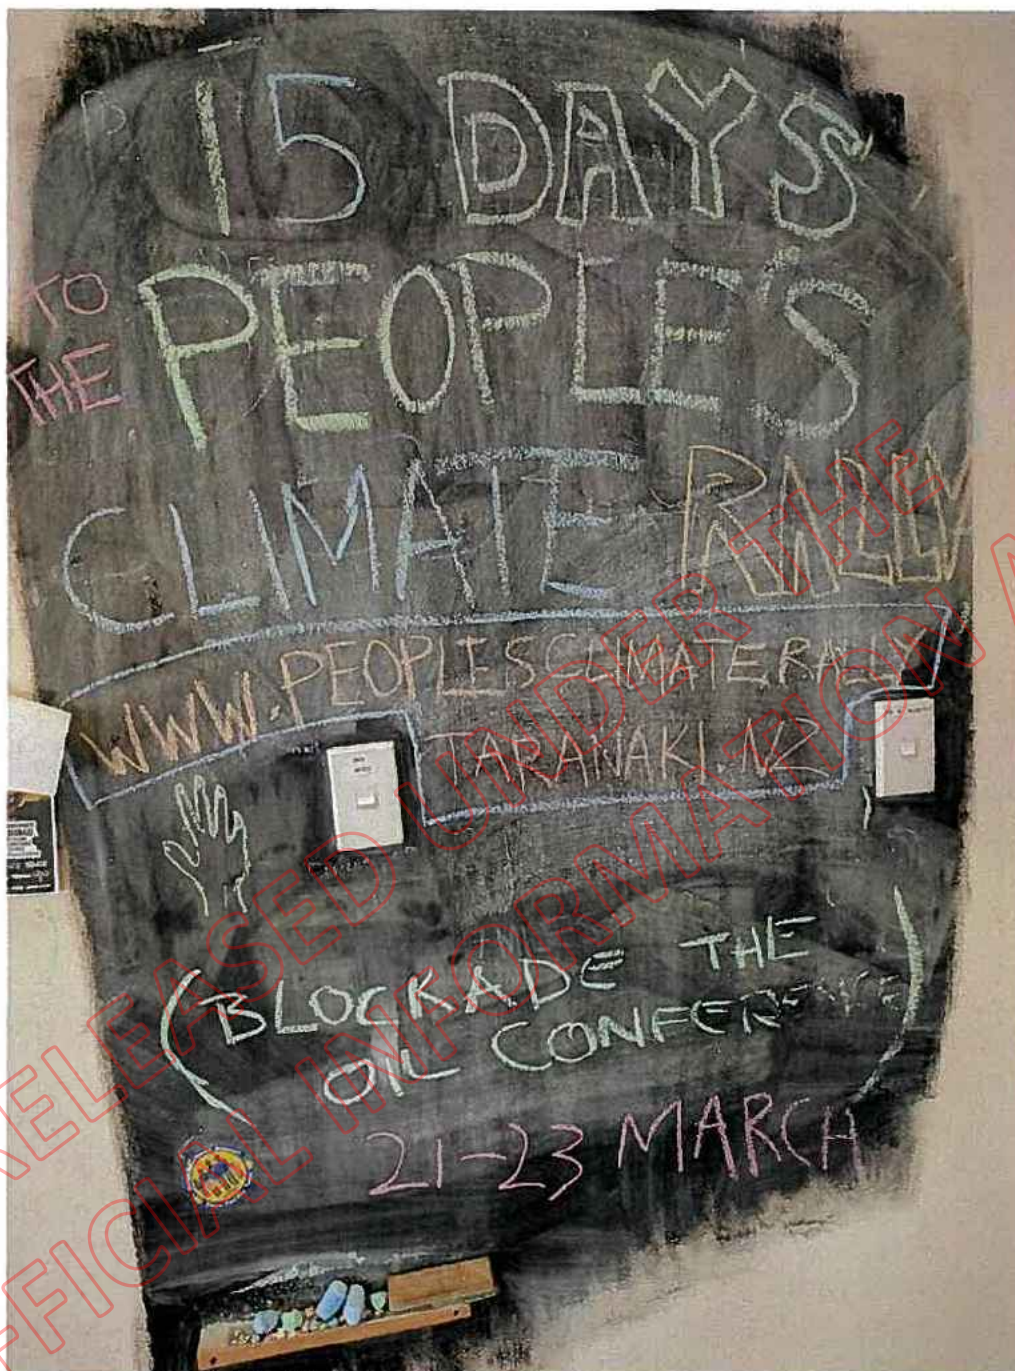 15 DAYS
TO
THE
PEOPLE'S
CLIMATE RALLY
WWW.PEOPLESCLIMATERALLY
TARANAKI.NZ
(BLOCKADE THE
OIL CONFERENCE)
21-23 MARCH
RELEASED UNDER THE
OFFICIAL INFORMATION A